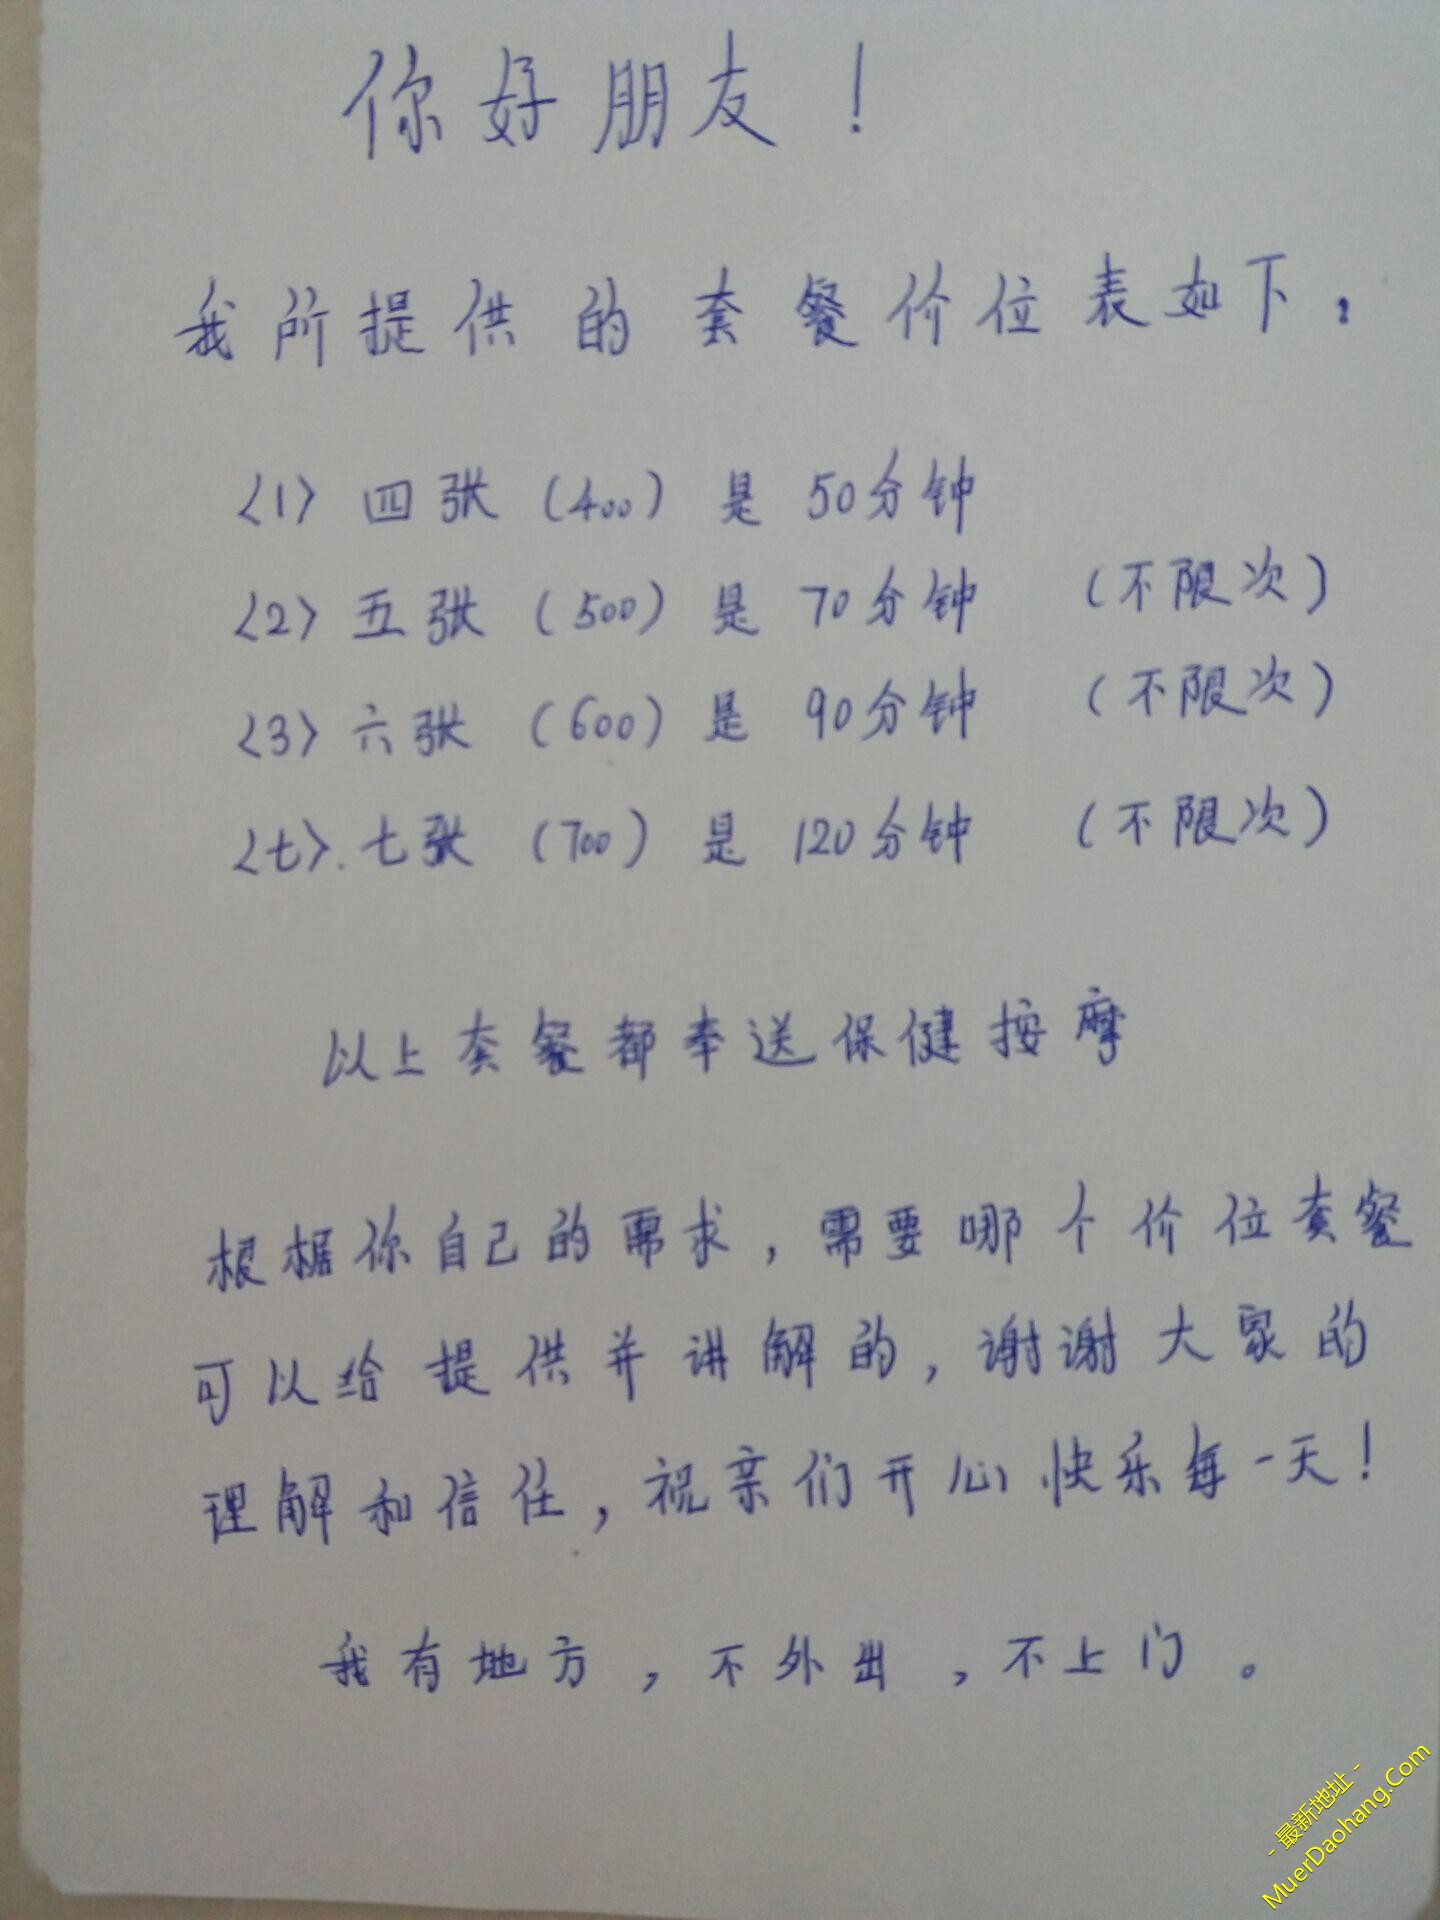 你好朋友！
我所提供的套餐价位表如下：
<1> 四张（400）是 50分钟
<2> 五张（500）是 70分钟 （不限次）
<3> 六张（600）是 90分钟 （不限次）
<七>. 七张（700）是 120分钟 （不限次）
以上套餐都奉送保健按摩
根椐你自己的需求，需要哪个价位套餐
可以给提供并讲解的，谢谢大家的
理解和信任，祝亲们开心快乐每一天！
我有地方，不外出，不上门。
- 最新地址 -
MuerDaohang.Com